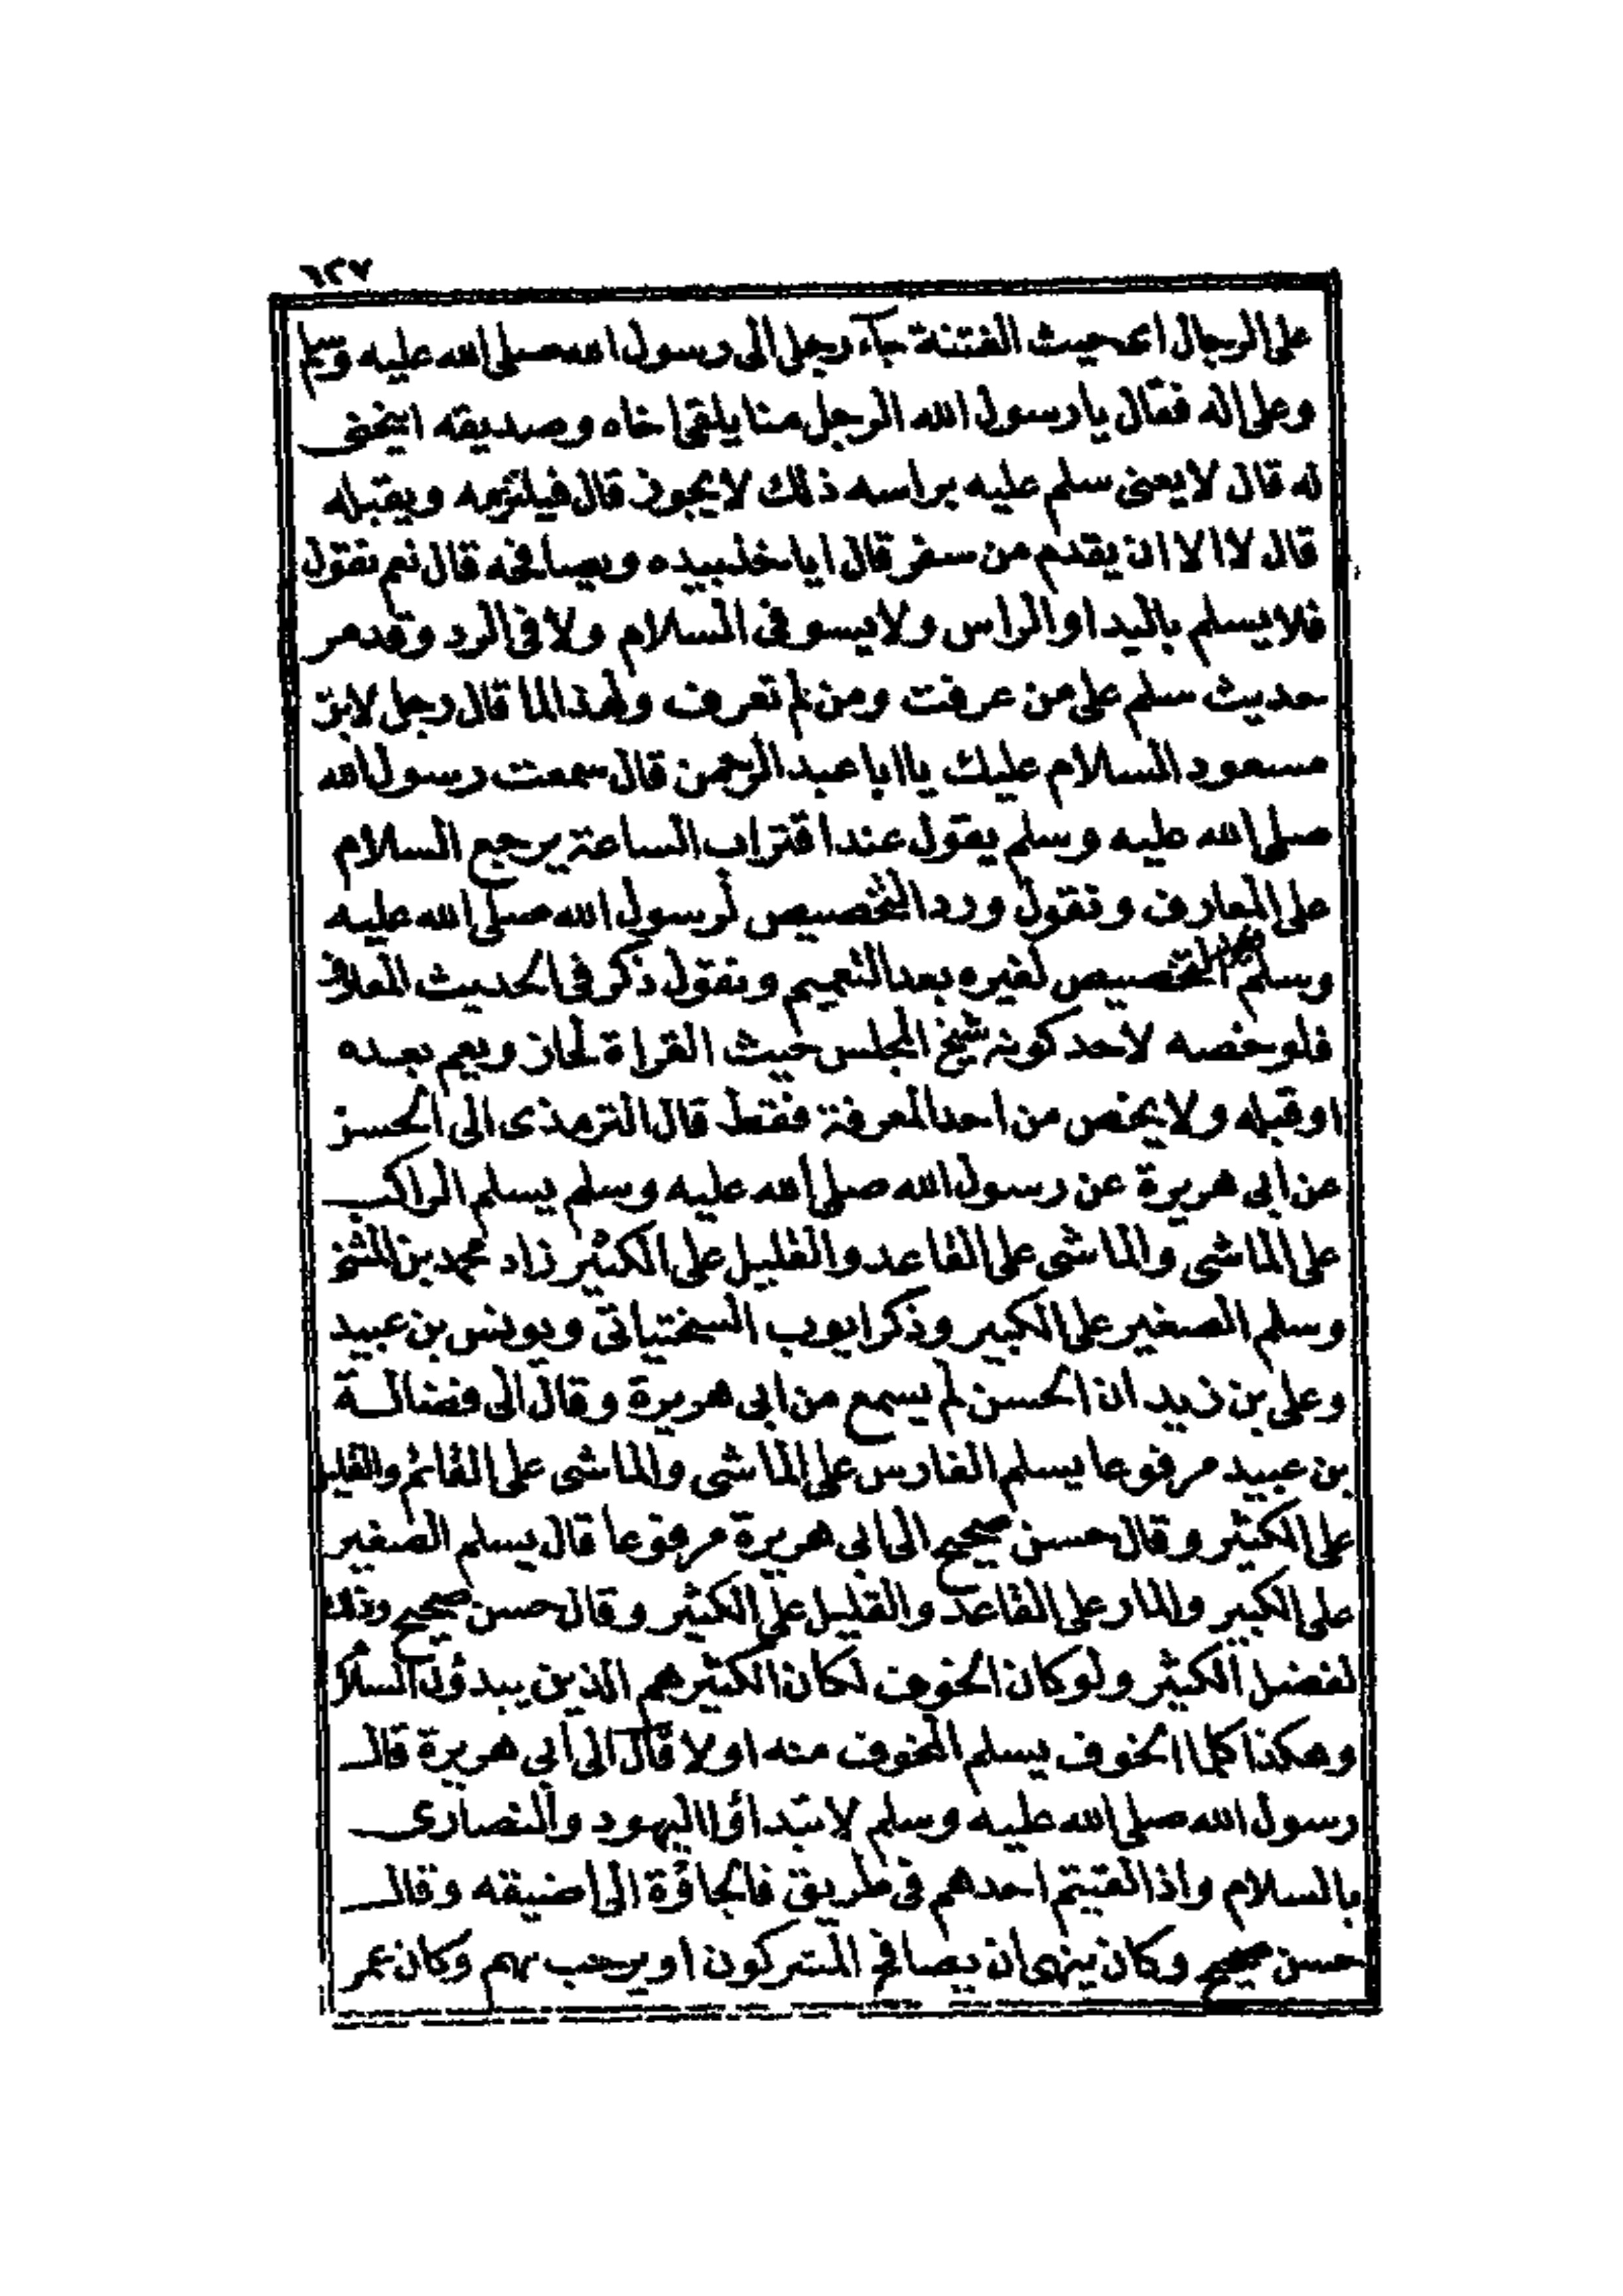 ١٢٧
على الرجال اى حيث الفتنة جآء رجل الى رسول الله صلى الله عليه وسلم
وعلى اله فقال يا رسول الله الرجل منا يلقى اخاه وصديقه اينحنى
له قال لا يعنى سلم عليه براسه ذلك لا يجوز قال فيلتزمه ويقبله
قال لا الا ان يقدم من سفر قال اياخذ بيده ويصافحه قال نعم نقول
فلا يسلم باليد او الراس ولا يسو فى السلام ولا فى الرد وقد مر
حديث سلم على من عرفت ومن لم تعرف ولهذا لما قال رجل لابن
مسعود السلام عليك يا ابا عبد الرحمن قال سمعت رسول الله
صلى الله عليه وسلم يقول عند اقتراب الساعة يرجع السلام
على المعارف ونقول ورد التخصيص لرسول الله صلى الله عليه
وسلم التخصيص لغيره بعد التعميم ونقول ذكر فى الحديث المعارف
فلو خصه لاحد كونه شيخ المجلس حيث القراة لجاز ويعم بعده
او قبله ولا يخص من احد المعرفة فقط قال الترمذى الى الحسن
عن ابى هريرة عن رسول الله صلى الله عليه وسلم يسلم الراكب
على الماشى والماشى على القاعد والقليل على الكثير زاد محمد بن المثنى
وسلم الصغير على الكبير وذكر ايوب السختيانى ويونس بن عبيد
وعلى بن زيد ان الحسن لم يسمع من ابى هريرة وقال الى فضالة
بن عبيد مرفوعا يسلم الفارس على الماشى والماشى على القائم والقليل
على الكثير وقال حسن صحيح الى ابى هريرة مرفوعا قال يسلم الصغير
على الكبير والمار على القاعد والقليل على الكثير وقال حسن صحيح وذلك
لفضل الكثير ولو كان الخوف لكان الكثير هم الذين يبدؤن السلام
وهكذا كلما الخوف يسلم المخوف منه اولا قال الى أبى هريرة قال
رسول الله صلى الله عليه وسلم لا تبتداؤا اليهود والنصارى
بالسلام واذا لقيتم احدهم فى طريق فالجاؤة الى اضيقه وقال
حسن صحيح وكان ينهى ان يصافح المشركون او يرحب بهم وكان عمر